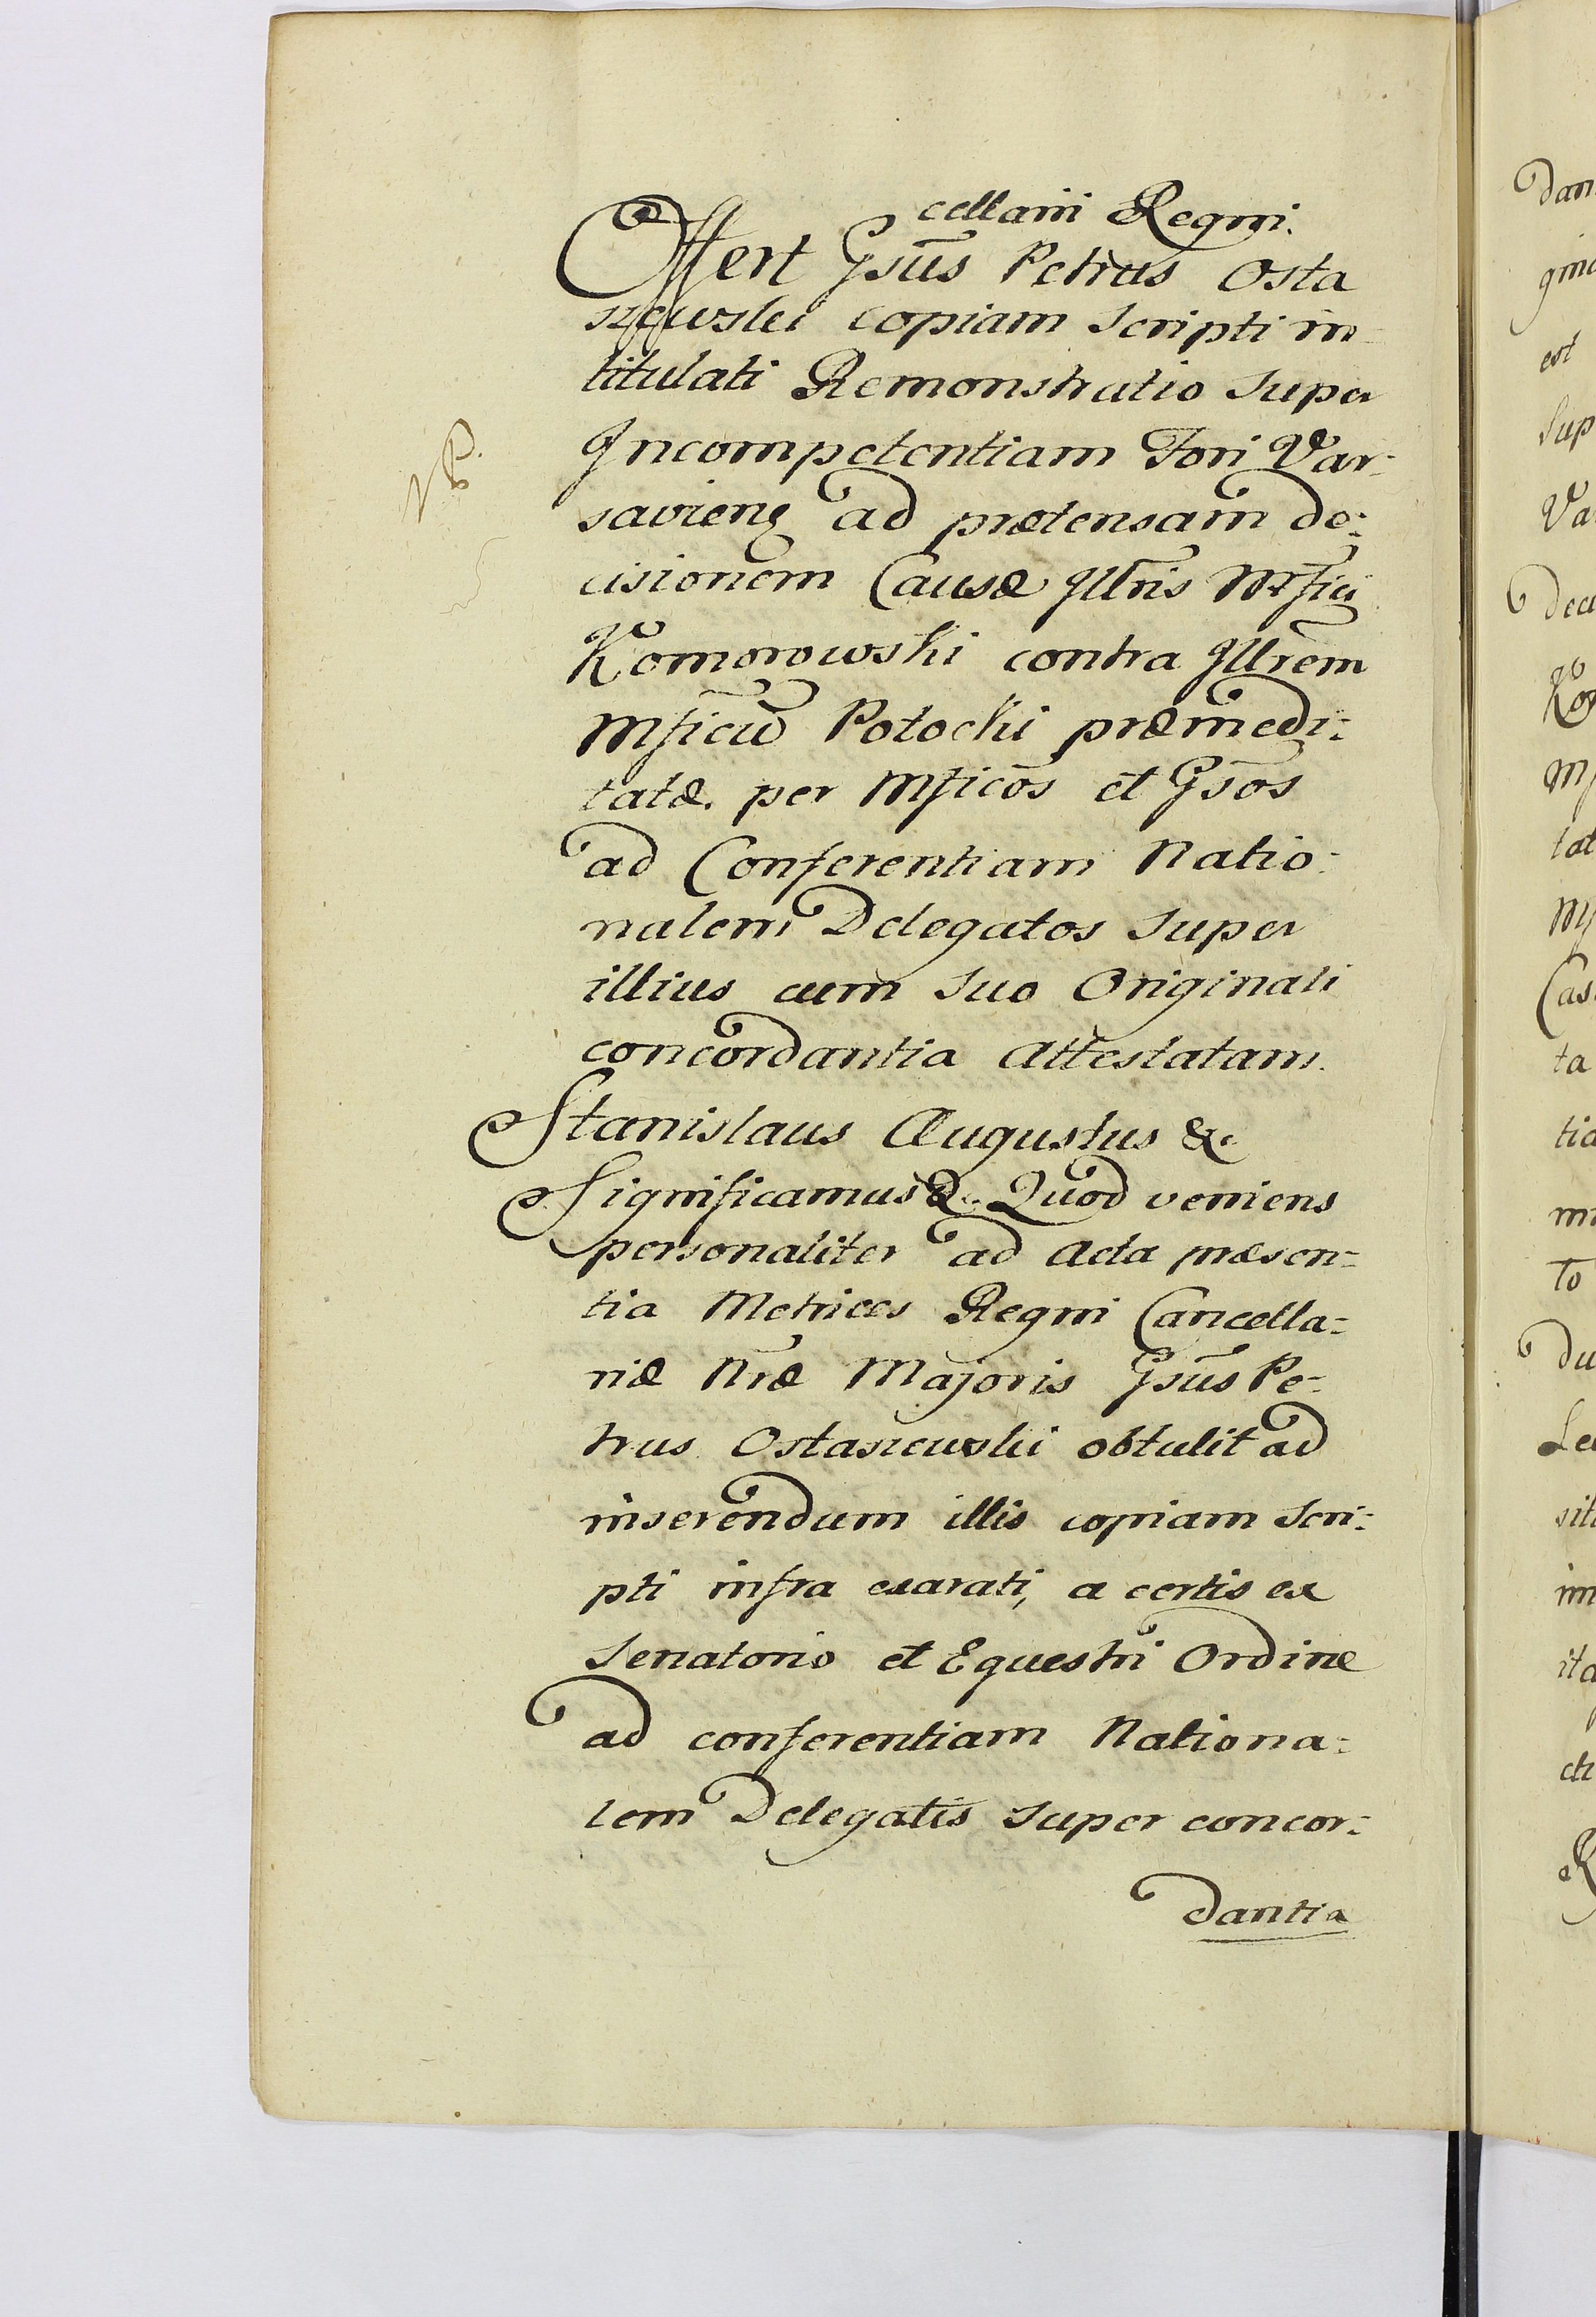 cellarii Regni.
Offert Gsūs Petrus Osta
szewski copiam Scripti in-
titulati Remonstratio super
Incompetentiam Fori Var-
saviens ad prætensam de-
cisionem Causæ Illris Mfici
NB.
Komorowski contra Illrem
Mficū Potocki præmedi-
tatæ. per Mficōs et Gsōs
ad Conferentiam Natio-
nalem Delegatos super
illius cum suo Originali
concordantia attestatam.
Stanislaus Augustus &c
Significamus &c. Quod veniens
personaliter ad Acta præsen-
tia Metrices Regni Cancella-
riæ Nræ Majoris Gsūs Pe-
trus Ostaszewski obtulit ad
inserendum illis copiam Scri-
pti infra exarati, a certis ex
Senatorio et Equestri Ordine
ad conferentiam Nationa-
lem Delegatis super concor-
dantia